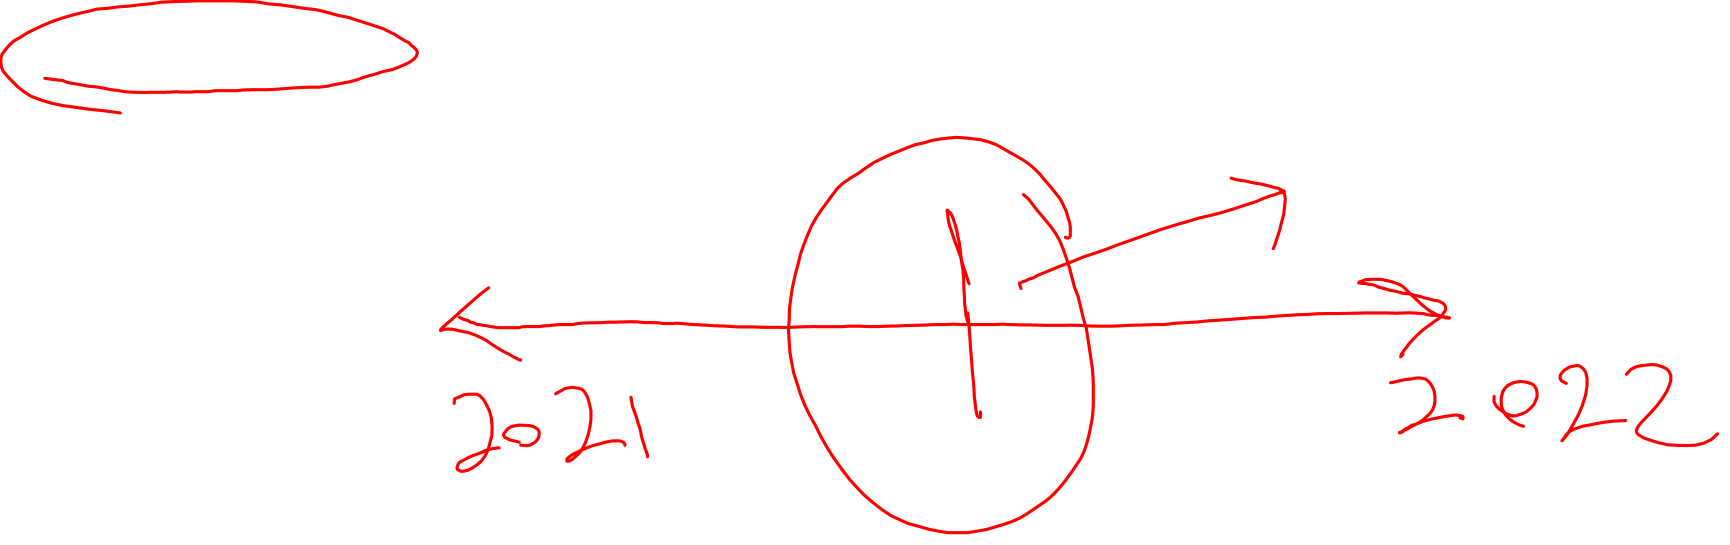 2021 2022